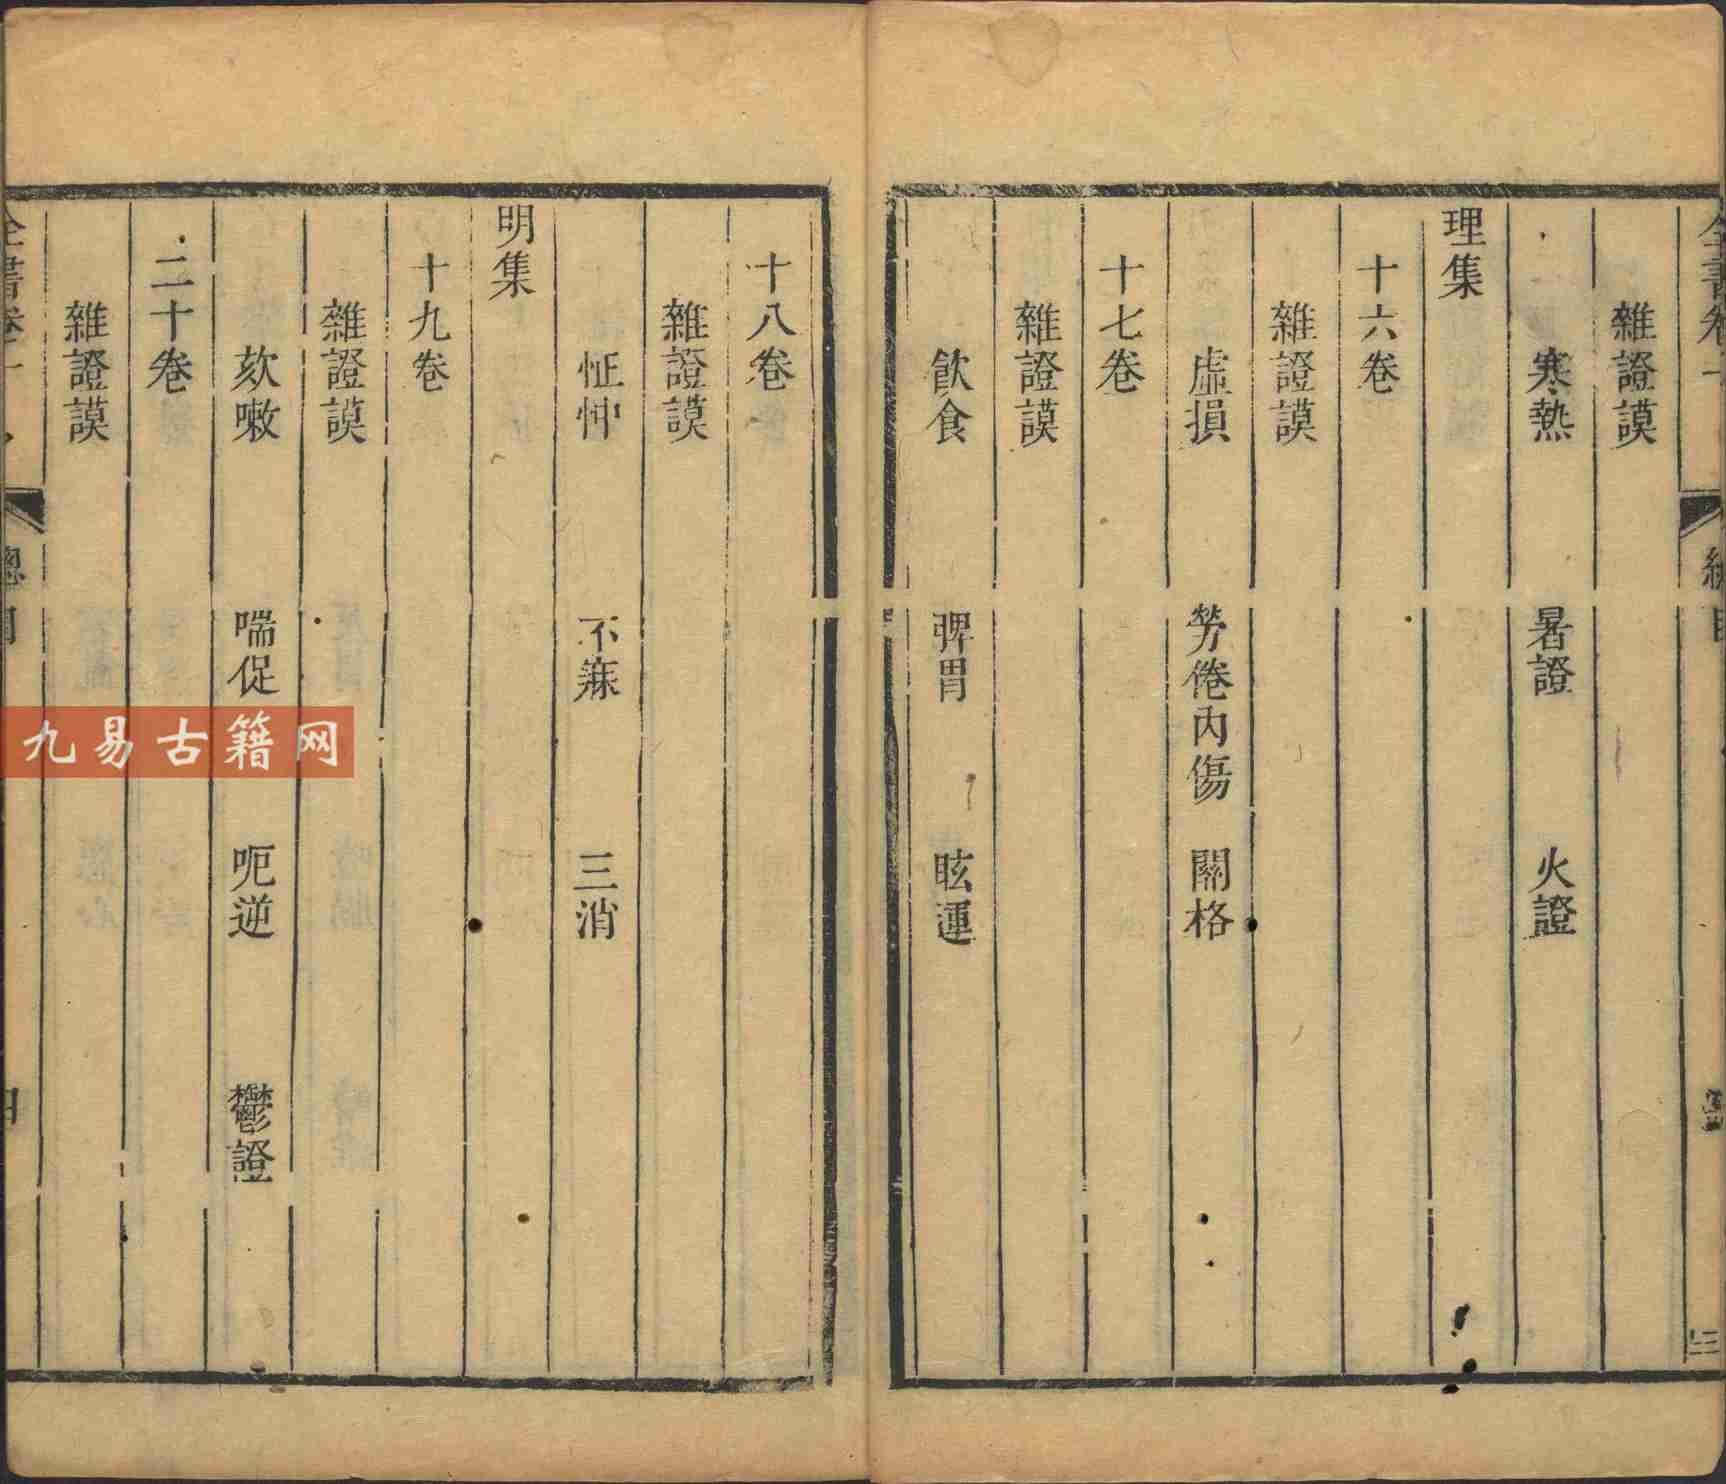 雜證謨
寒熱 暑證 火證
理集
十六卷
雜證謨
虛損 勞倦內傷 關格
十七卷
雜證謨
飲食 脾胃 眩運
十八卷
雜證謨
怔忡 不寐 三消
明集
十九卷
雜證謨
欬嗽 喘促 呃逆 鬱證
二十卷
雜證謨
全書卷 總目
九易古籍网